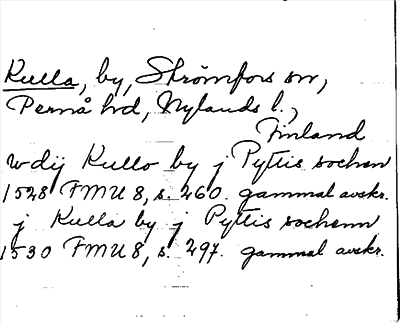 Kulla, by, Strömfors sn,
Pernå hd, Nylands l.,
Finland
wdij Kullo by j Pyttis sochen
1528 FMU 8, s. 260. gammal avskr.
j Kulla by j Pyttis sochenn
1530 FMU 8, s. 297. gammal avskr.